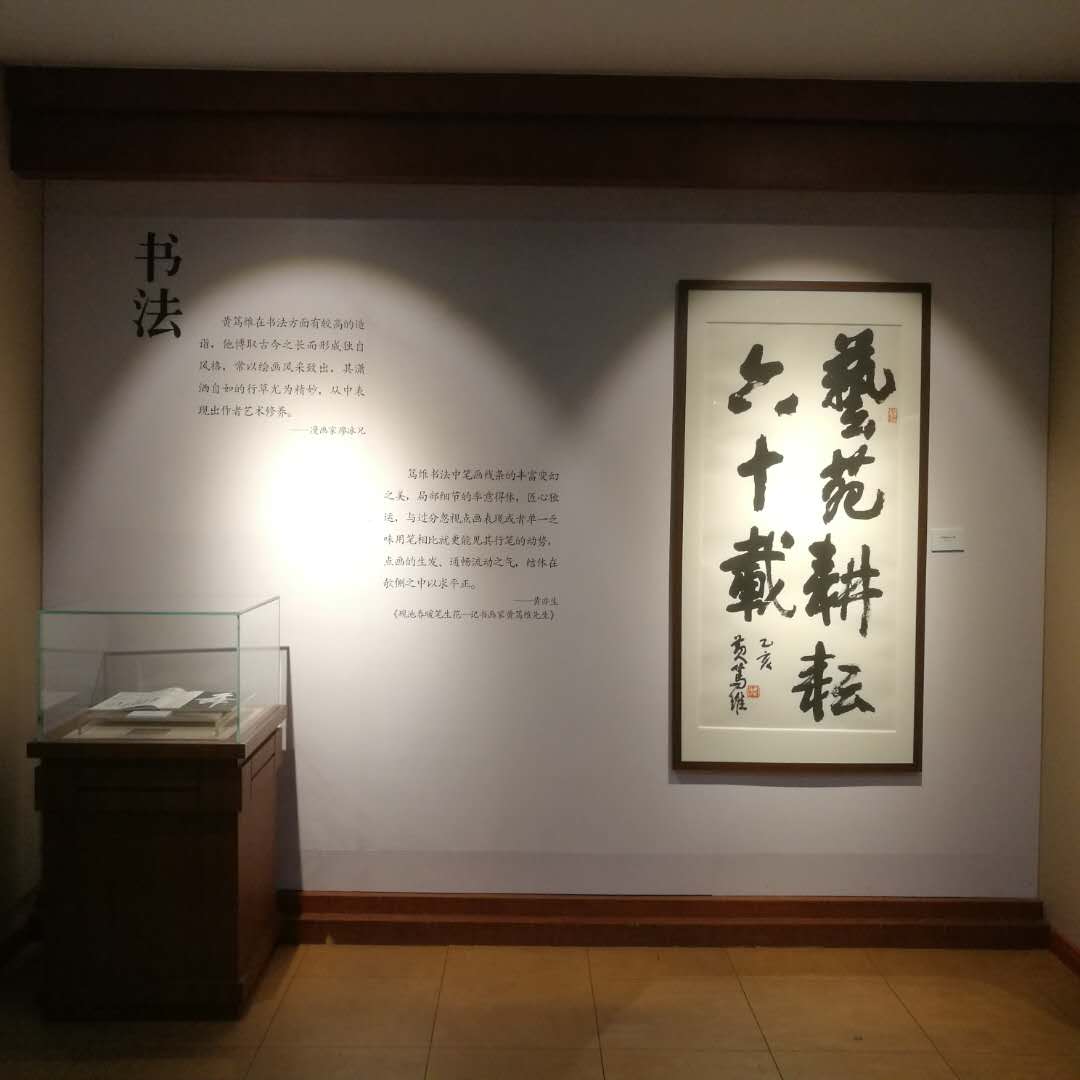 书法
黄笃维在书法方面有较高的造
诣，他博取古今之长而形成独自
风格，常以绘画风采致出，其潇
洒自如的行草尤为精妙，从中表
现出作者艺术修养。
——漫画家廖冰兄
笃维书法中笔画线条的丰富变幻
之美，局部细节的率意得体，匠心独
运，与过分忽视点画表现或者单一乏
味用笔相比就更能见其行笔的动势，
点画的生发、通畅流动之气，结体在
欹侧之中以求平正。
——黄亦生
《砚池春暖笔生花—记书画家黄笃维先生》
藝苑耕耘
六十載
乙亥
黄笃维